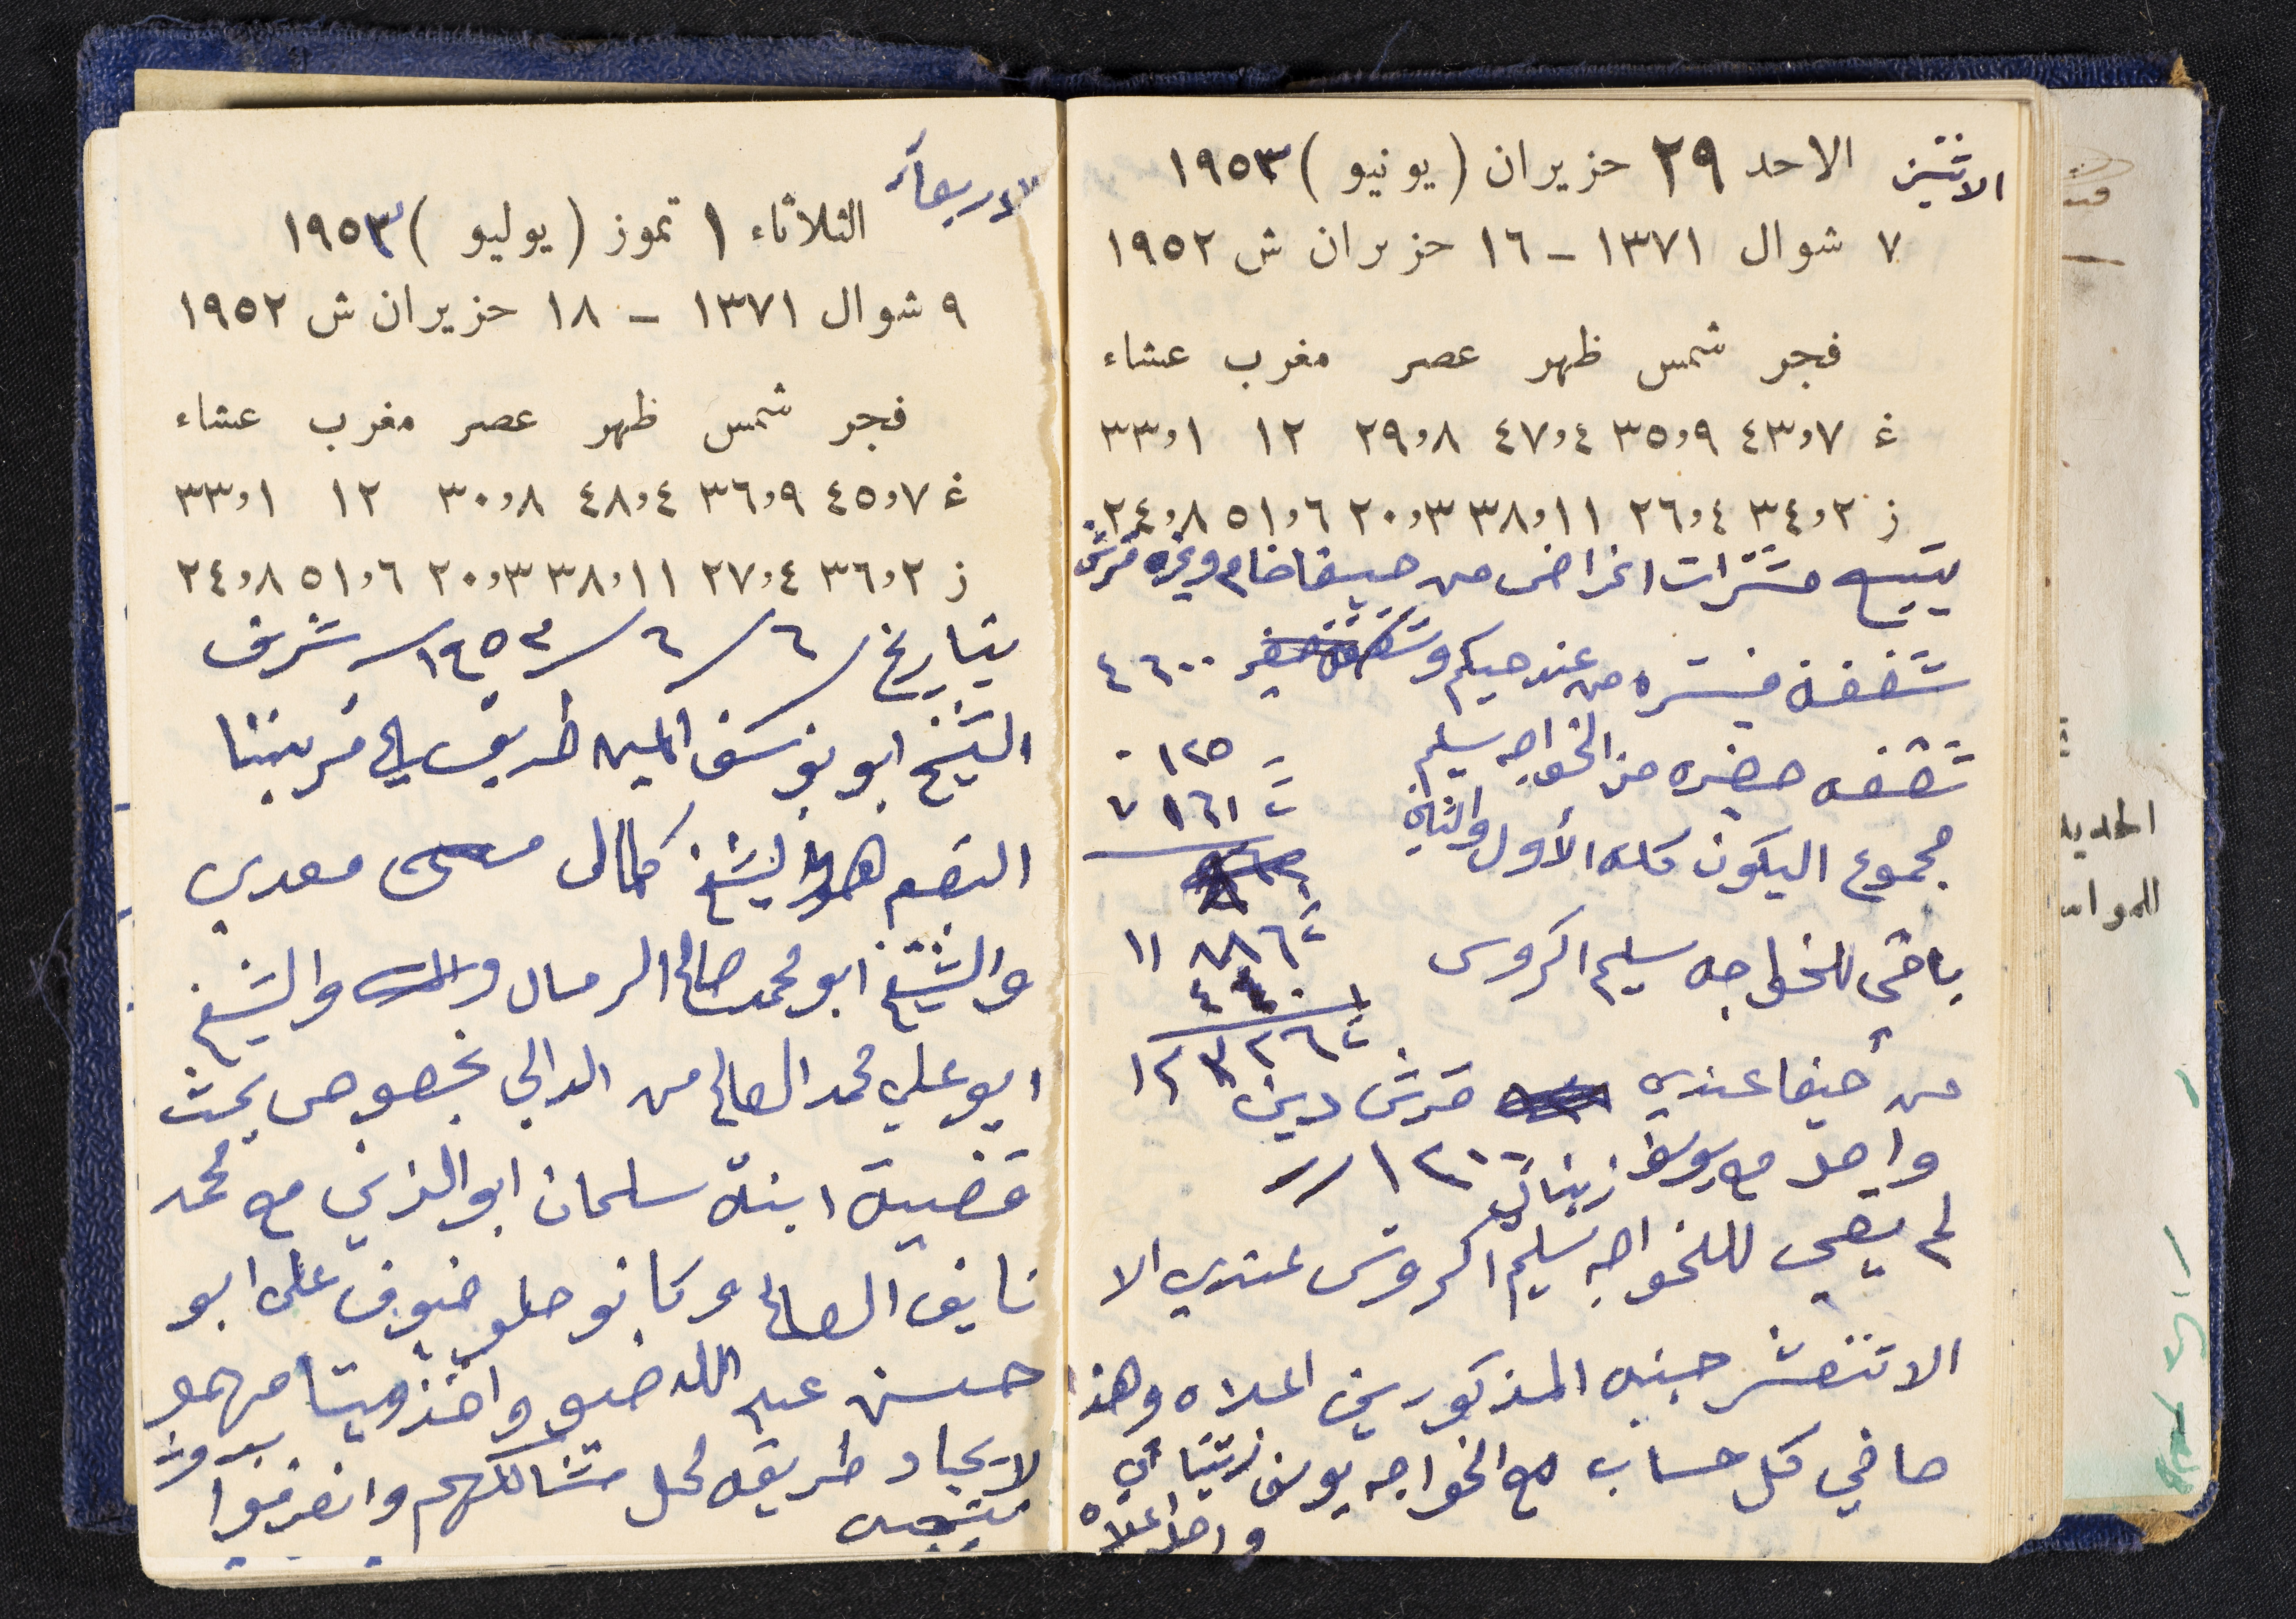 الاثنين الاحد ٢٩ حزيران (يونيو) ١٩٥٣
٧ شوال ١٣٧١ - ١٦ حزيران ش ١٩٥٢
فجر شمس ظهر عصر مغرب عشاء
غ ٤٣،٧ ٣٥،٩ ٤٧،٤ ٢٩،٨ ١٢ ٣٣،١
ز ٣٤،٢ ٢٦،٤ ٣٨،١١ ٢٠،٣ ٥١،٦ ٢٤،٨
مشترات اغراض من حيفا خام وغيره قرش
شقفه من عند حيكم ٤٦٠٠
شقفه حضره من الخواجه سليم ١٢٥٠
مجموع اليكون كله الأول والثاني ١٦١٧
باقي للخواجه سليم اكروس ١١٨٨٦
٤٤٠
من حيفا عندي قرش دين ١٢٣٢٦
واصل مع يوسف زيناتي ١٢٠٠
لم يبقى للخواجه سليم اكروس عندي الا
الا تنعشر جنيه المذكورين اعلاه وهذا
صافي كل حساب مع الخواجه يوسف زيناتي
واصل اعلاه
الاربعاء
الثلاثاء ١ تموز (يوليو) ١٩٥٣
٩ شوال ١٣٧١ - ١٨ حزيران ش ١٩٥٢
فجر شمس ظهر عصر مغرب عشاء
غ ٤٥،٧ ٣٦،٩ ٤٨،٤ ٣٠،٨ ١٢ ٣٣،١
ز ٣٦،٢ ٢٧،٤ ٣٨،١١ ٢٠،٣ ٥١،٦ ٢٤،٨
بتاريخ ٦/٦/١٩٥٣ شرف
الشيخ ابو يوسف امين طريف الي قريتنا
البقيعه هو والشيخ كمال معدي
والشيخ ابو محمد صالح الرمال والشيخ
ابو علي محمد الصالح من الدالي بخصوص بحث
قضية ابنة سلمان ابو الزني مع محمد
نايف الصالح وكانو حلو ضيوف على ابو
حسن عبد الله ضو واخذو يتا مهمو
لايجاد طريقه لحل مشاكلهم وانصرفوا بدون
نتيجه
الحديد